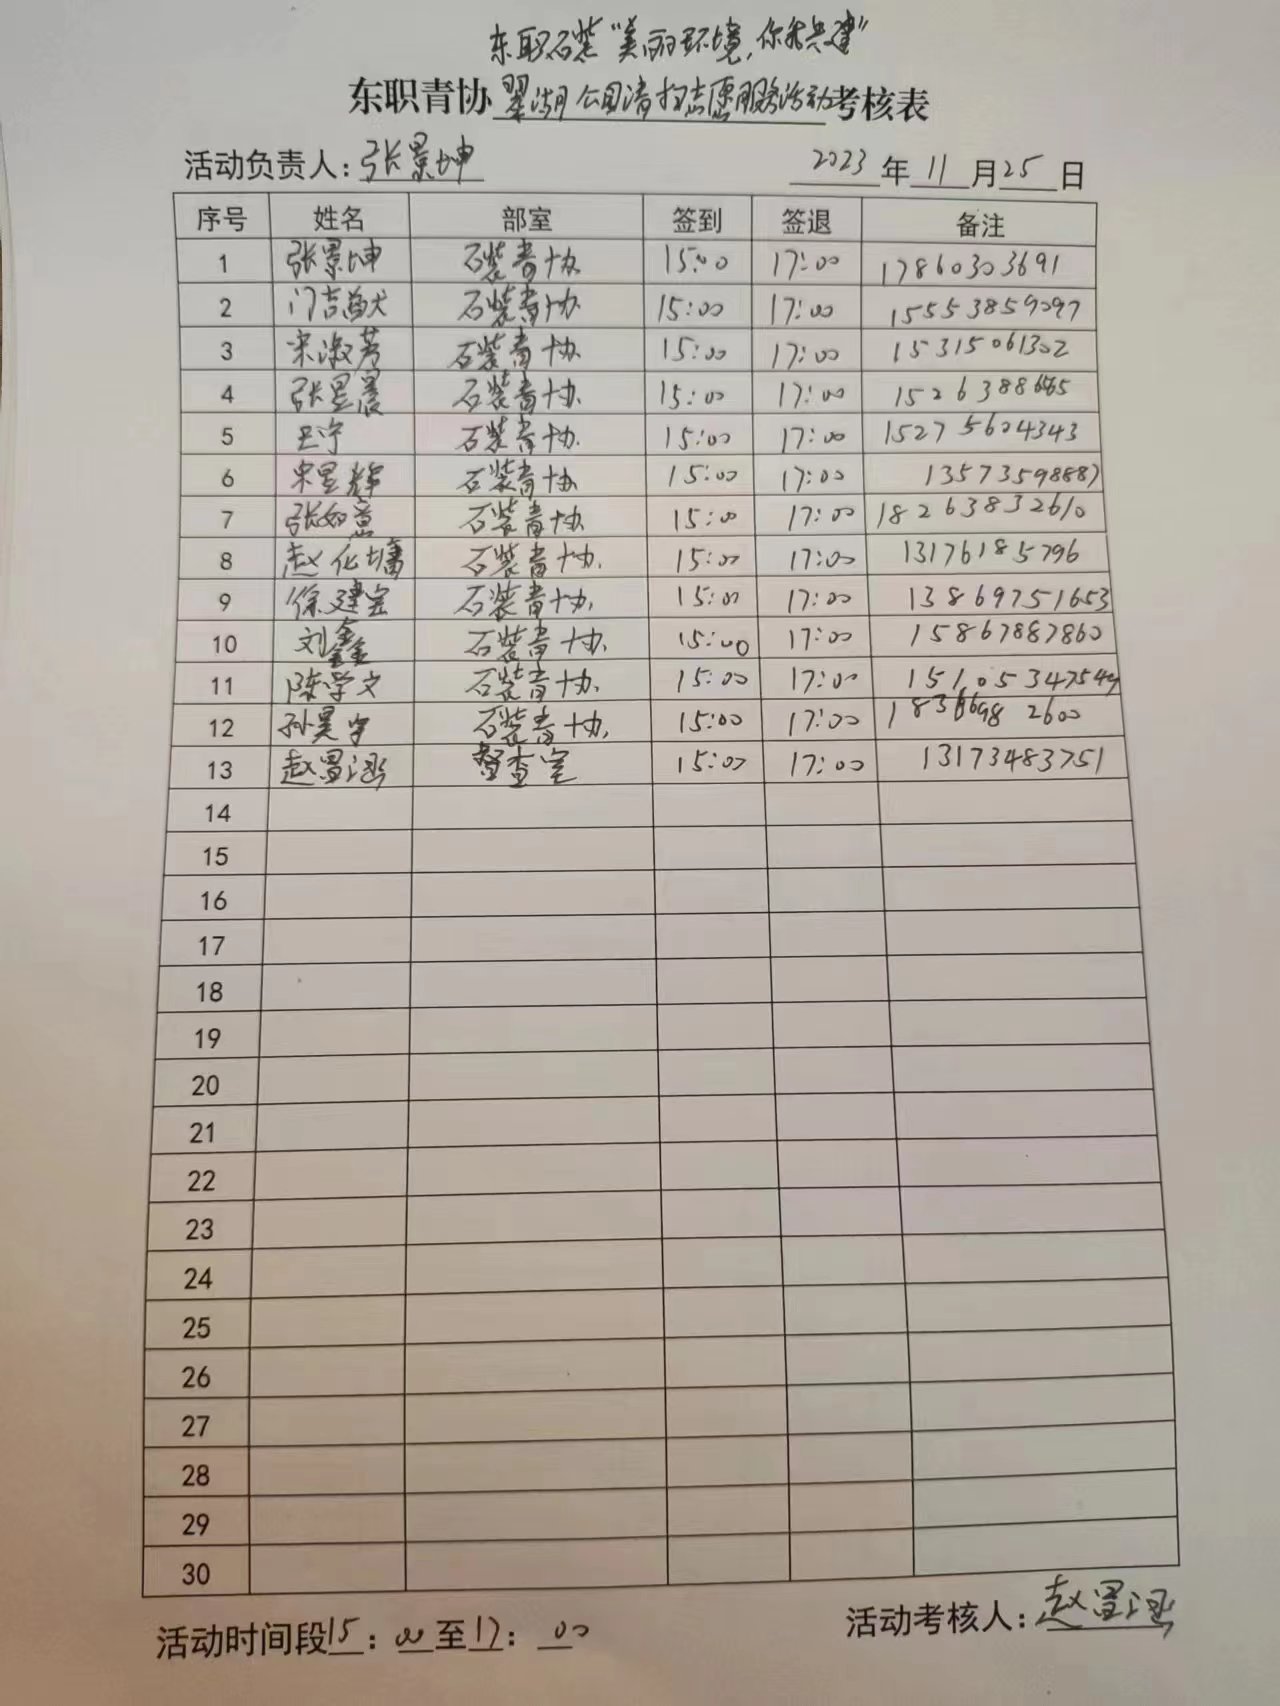 东职石装“美丽环境,你我共建”
东职青协翠湖公园清扫志愿服务活动考核表
活动负责人:张景坤 2023年11月25日
序号 姓名 部室 签到 签退 备注
1 张景坤 石装青协 15:00 17:00 17860303691
2 门吉猷 石装青协 15:00 17:00 15553859097
3 宋淑芳 石装青协 15:00 17:00 15315061302
4 张昱晨 石装青协 15:00 17:00
5 王宁 石装青协 15:00 17:00 15275604343
6 宋昱辉 石装青协 15:00 17:00 13573598887
7 张如意 石装青协 15:00 17:00 18263832610
8 赵化墉 石装青协. 15:00 17:00 13176185796
9 徐建宝 石装青协. 15:00 17:00 13869751653
10 刘鑫鑫 石装青协. 15:00 17:00 15867887860
11 陈学文 石装青协. 15:00 17:00 15105347549
12 孙昊宇 石装青协. 15:00 17:00 18366982600
13 赵昱涵 督查室 15:00 17:00 13173483751
14
15
16
17
18
19
20
21
22
23
24
25
26
27
28
29
30
活动时间段15:00至17:00 活动考核人:赵昱涵